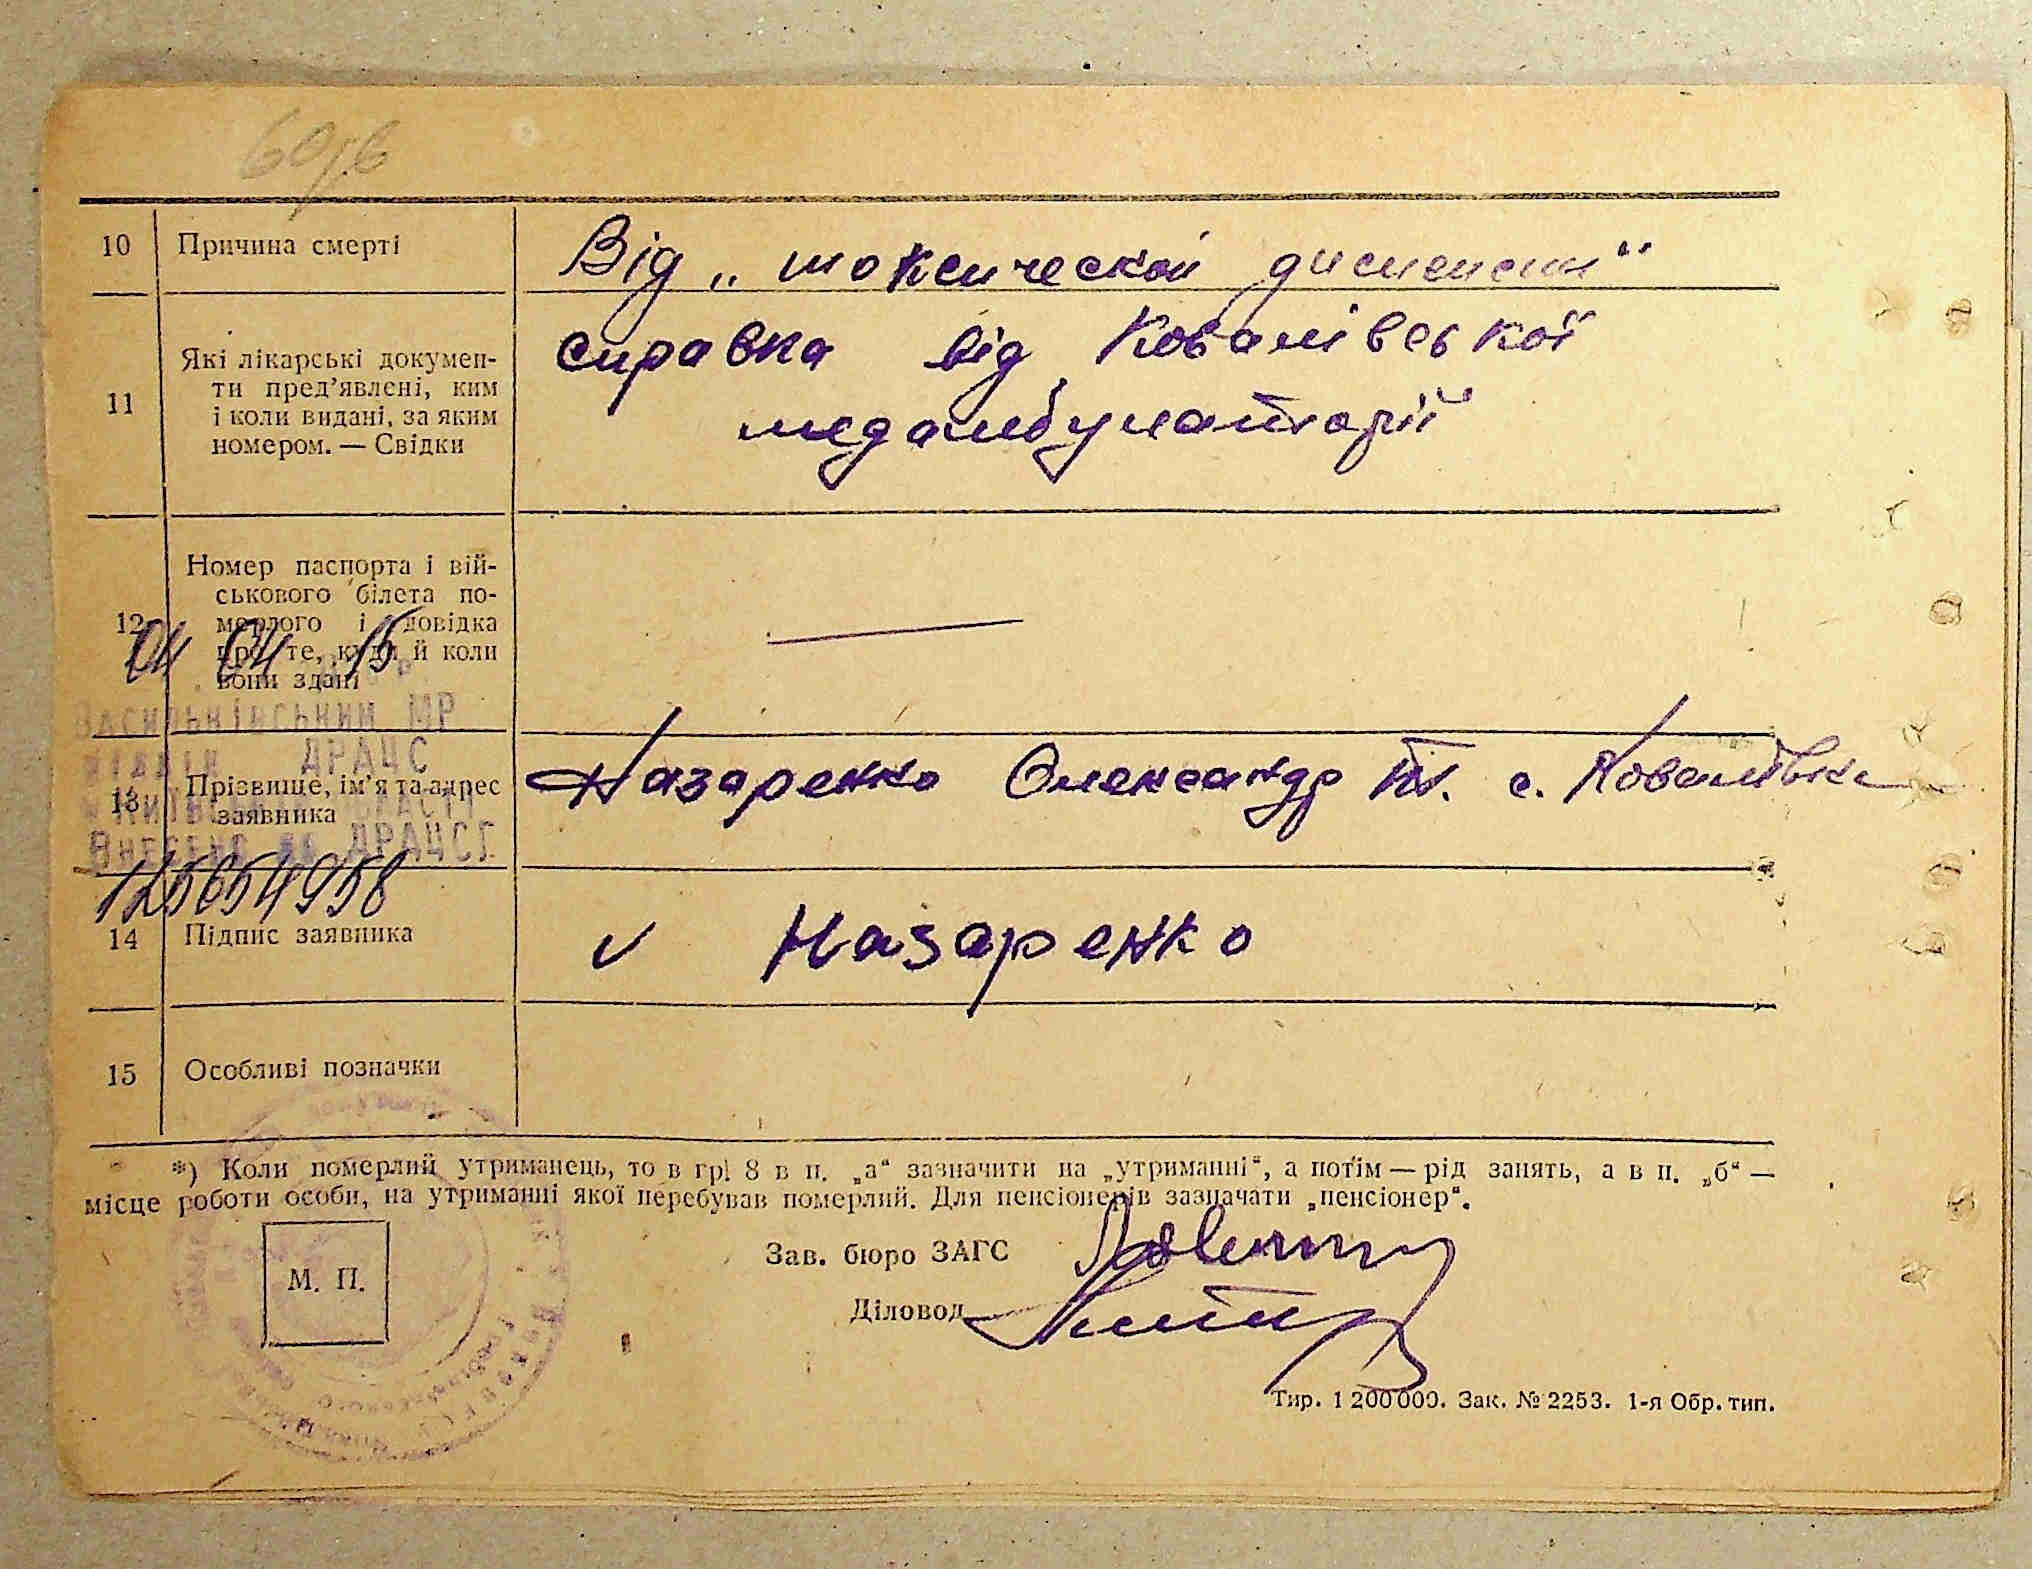 10 Причина смерті
Від „токсической диспепсии"
11 Які лікарські докумен-
ти пред’явлені, ким
і коли видані, за яким
номером. — Свідки
справка від Ковалівської
медамбулаторії
12 Номер паспорта і вій-
ськового білета по-
мерлого і довідка
про те, куди й коли
вони здані
04 04 15
Васильківським МР
відділ ДРАЦС
Київської області
Внесено до ДРАЦСГ
13 Прізвище, ім’я та адрес
заявника
Назаренко Олександр с. Ковалівка
125654958
14 Підпис заявника
v Назаренко
15 Особливі позначки
*) Коли померлий утриманець, то в гр. 8 в п. „а“ зазначити на „утриманні“, а потім — рід занять, а в п. „б“ —
місце роботи особи, на утриманні якої перебував померлий. Для пенсіонерів зазначати „пенсіонер“.
Зав. бюро ЗАГС
М. П.
Діловод
Тир. 1 200 000. Зак. № 2253. 1-я Обр. тип.